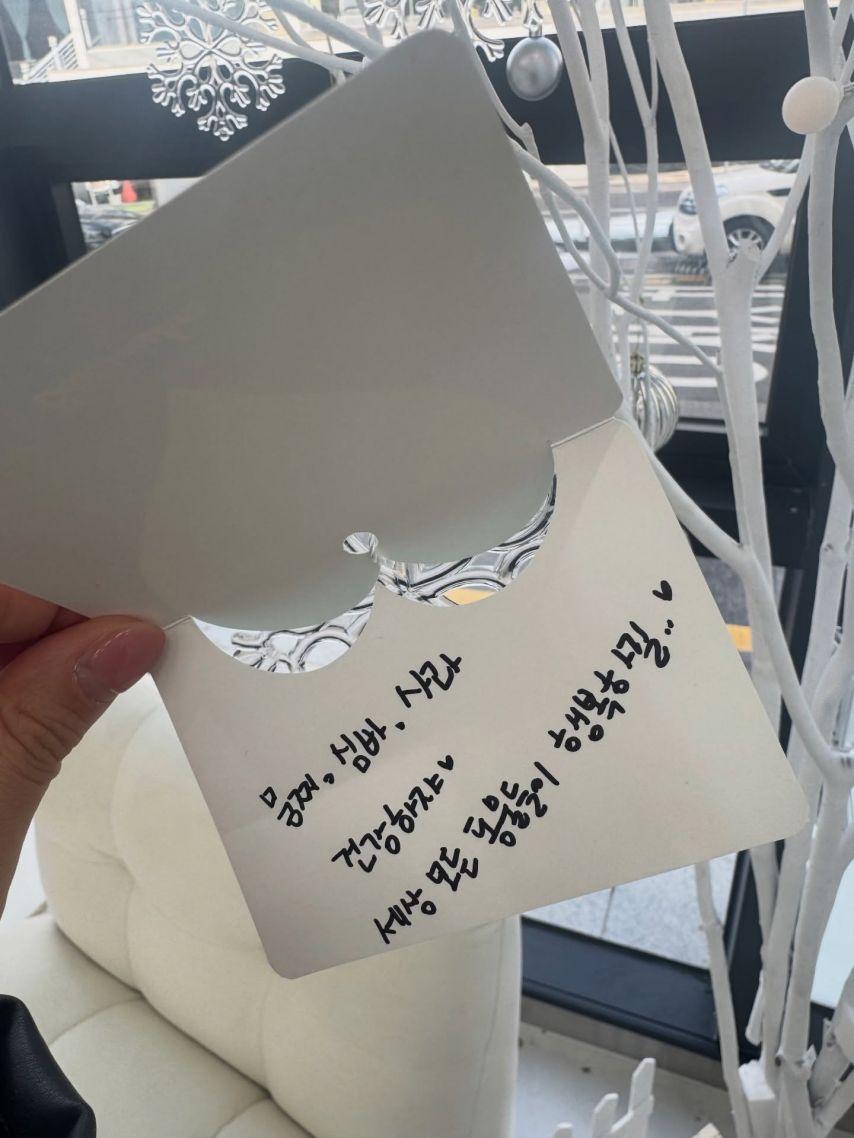 뭉찌, 심바, 사라
건강하자♥
세상 모든 동물들이 행복하길..♥